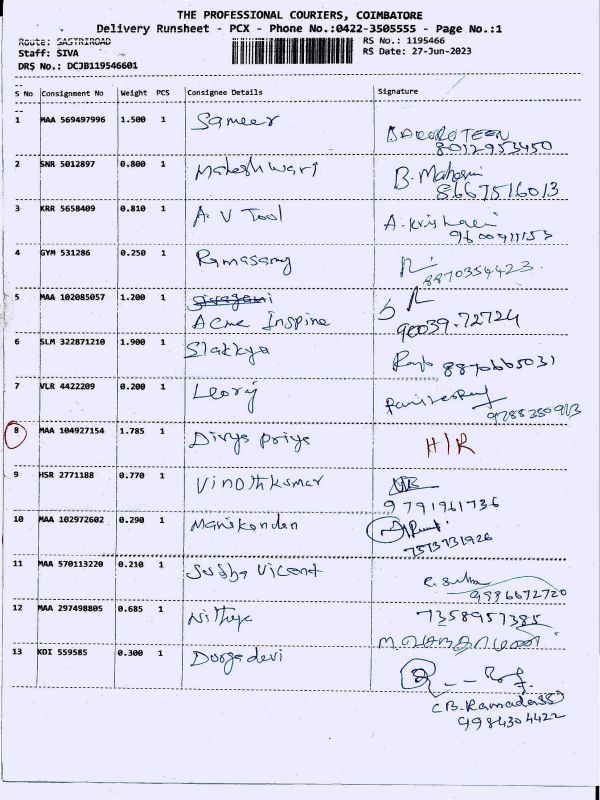 THE PROFESSIONAL COURIERS, COIMBATORE
Delivery Runsheet - PCX - Phone No.:0422-3505555 - Page No.:1
Route: SASTRIROAD
RS No.: 1195466
Staff: SIVA
RS Date: 27-Jun-2023
DRS No.: DCJB119546601
S No Consignment No Weight PCS Consignee Details Signature
1 MAA 569497996 1.500 1 Sameer
8012953450
2 SNR 5012897 0.800 1 Maheshwari B. Maheswari
8667516013
3 KRR 5658409 0.810 1 A. V Tool A. Krishna
4 GYM 531286 0.250 1 Ramasamy
8870354423
5 MAA 102085057 1.200 1
Acme Inspine 90039.72724
6 SLM 322871210 1.900 1 8870665031
7 VLR 4422209 0.200 1
8 MAA 104927154 1.785 1 Divya priya H/R
9 HSR 2771188 0.770 1 Vinothkumar
9791961736
10 MAA 102972602 0.290 1 Manikandan
7373731926
11 MAA 570113220 0.210 1 Sudha Vicent
12 MAA 297498805 0.685 1 Nithya 7358957385
13 KDI 559585 0.300 1 Durgadevi
CB. Ramadass
9984304422